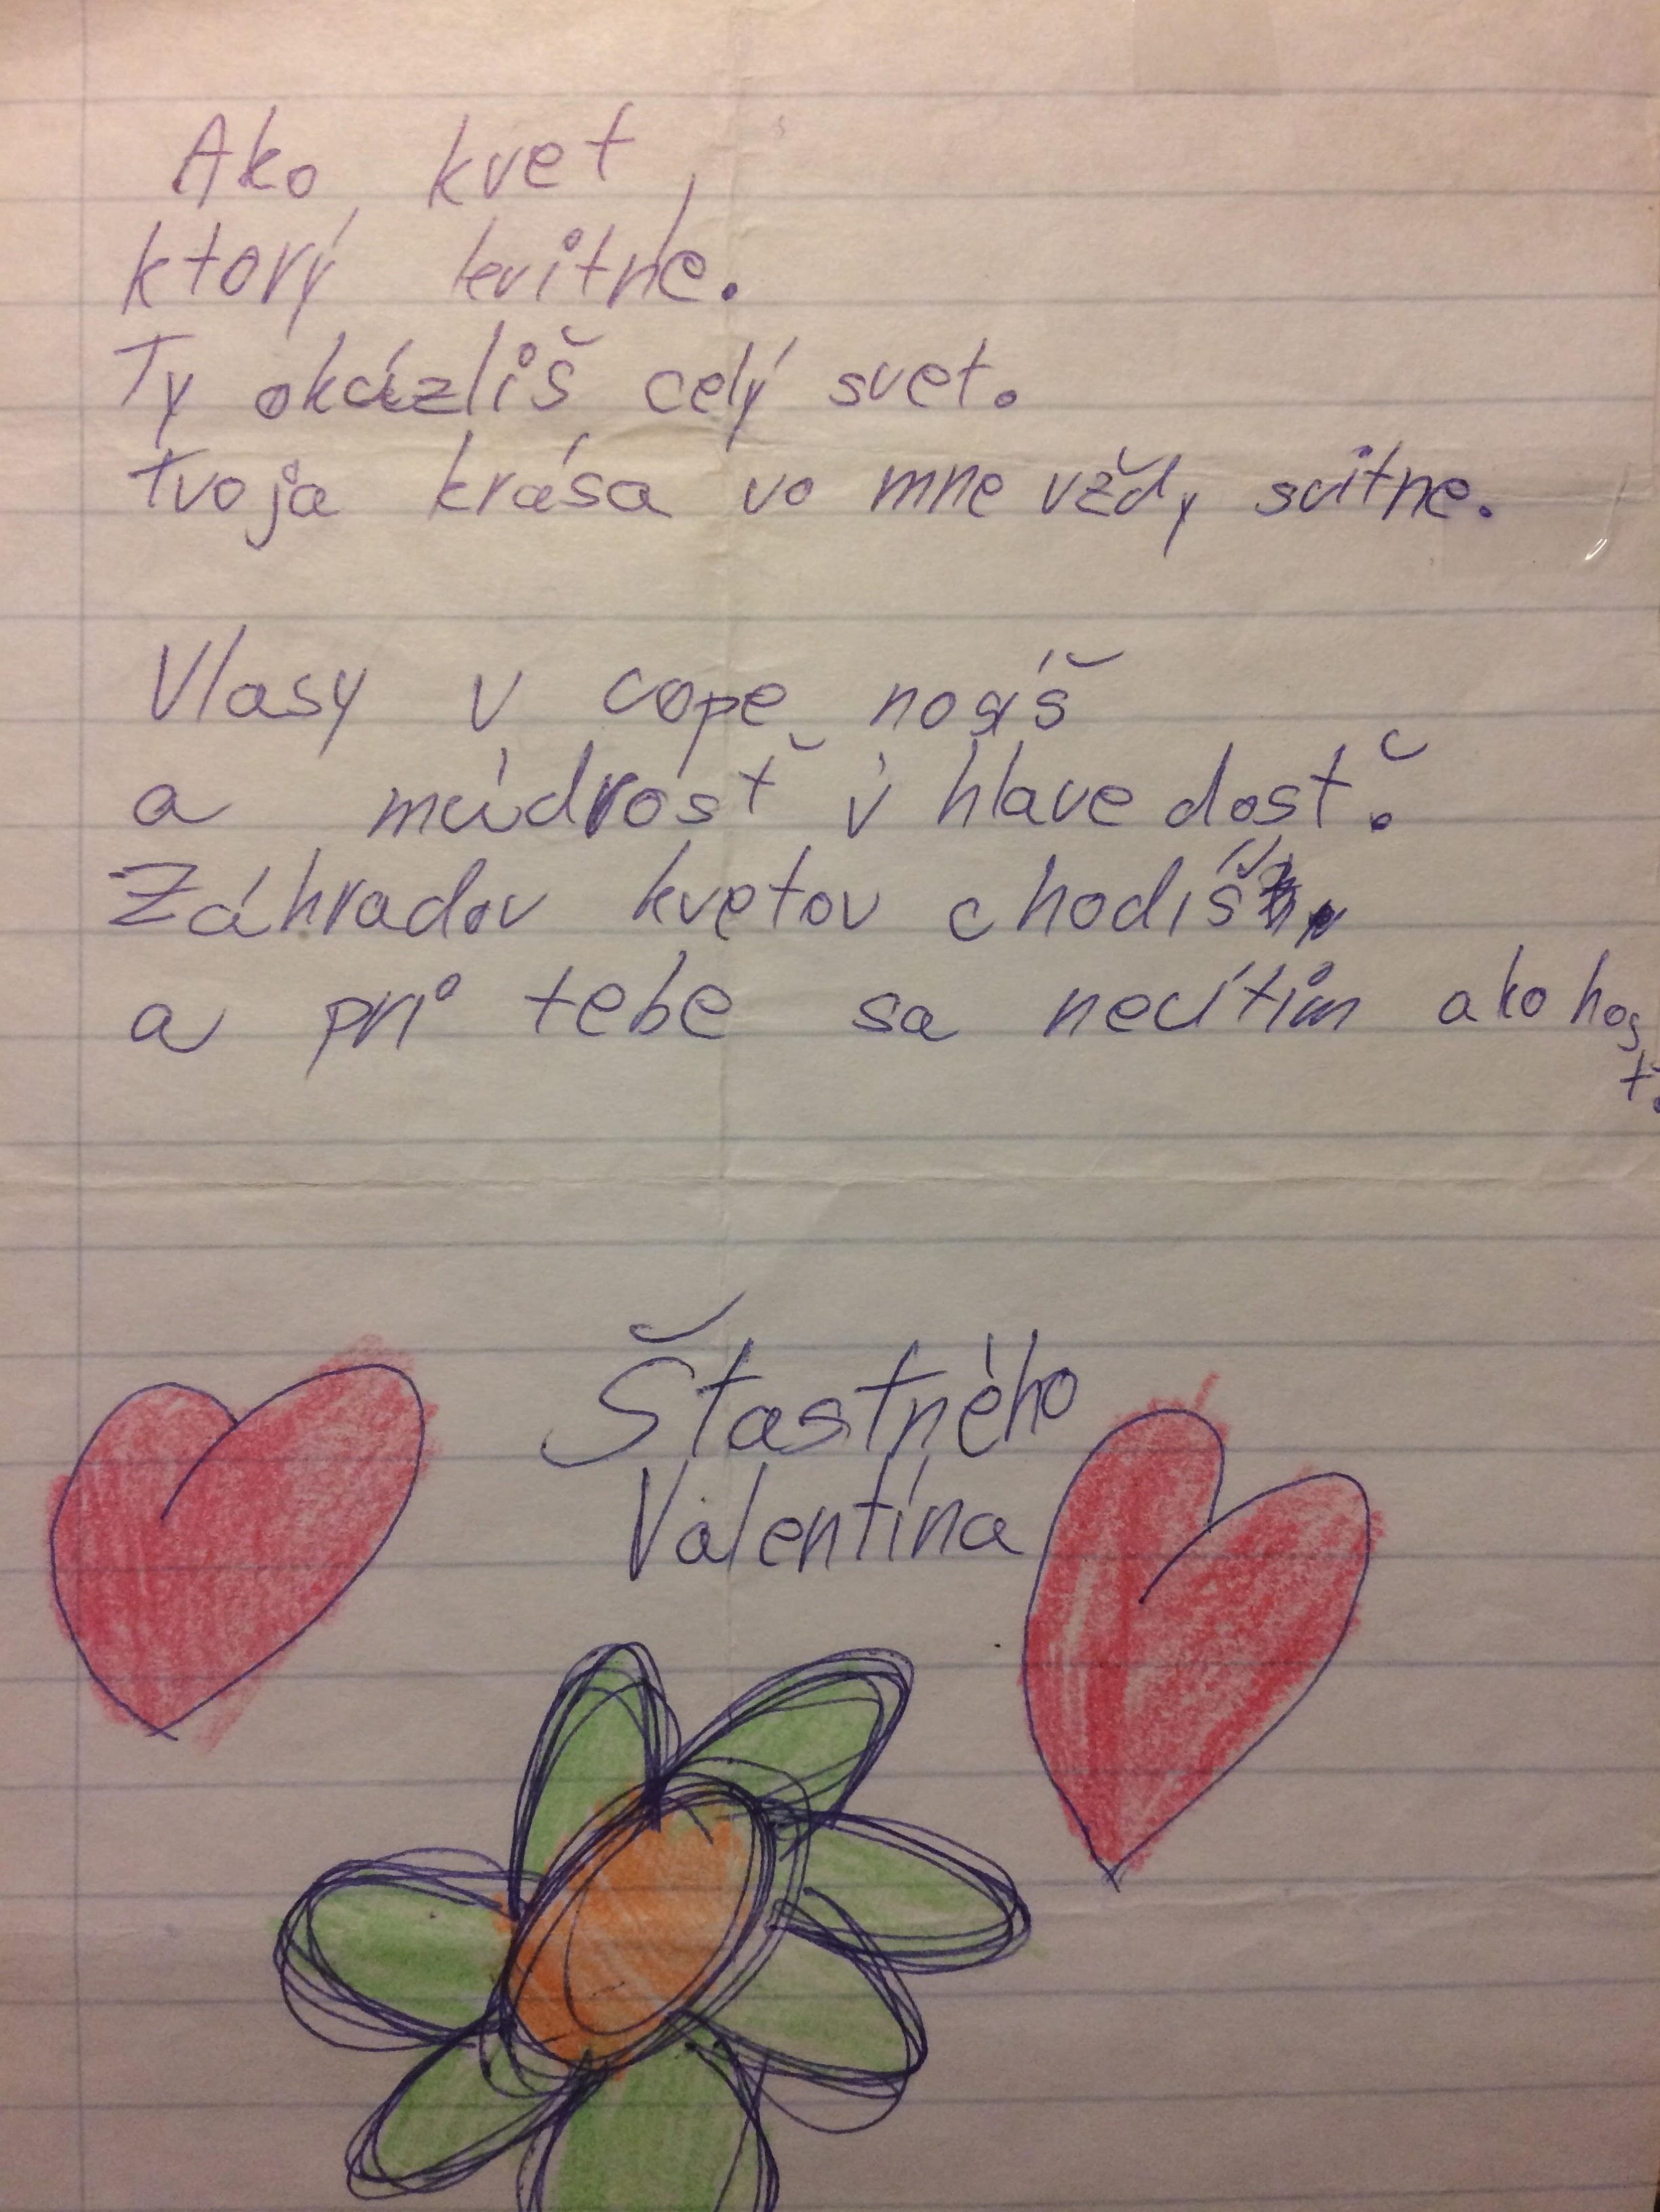 Ako kvet,
ktorý kvitne.
Ty okázliš celý svet.
tvoja krása vo mne vždy svitne.
Vlasy v cope nosíš
a múdrosť v hlave dosť.
Záhradov kvetov chodíš
a pri tebe sa necítim ako hos
ť.
Štastného
Valentína